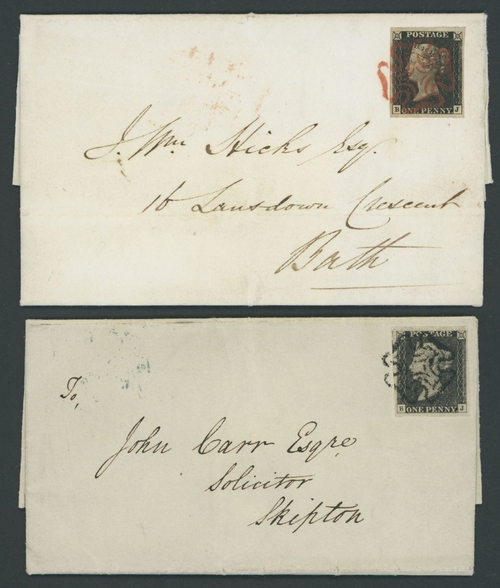 POSTAGE
B J
ONE PENNY
J. Wm Hicks Esq.
16 Lansdown Crescent
Bath
POSTAGE
B J
ONE PENNY
To,
John Carr Esqre
Solicitor
Skipton